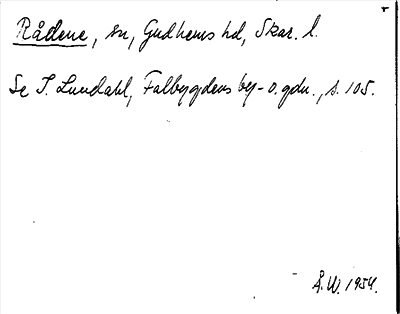 Rådene, sn, Gudhems hd, Skar. l.
Se I. Lundahl, Falbygdens by- o. gdn., s. 105.
Å.W. 1954.